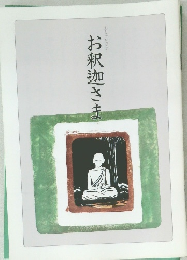 お釈迦さま